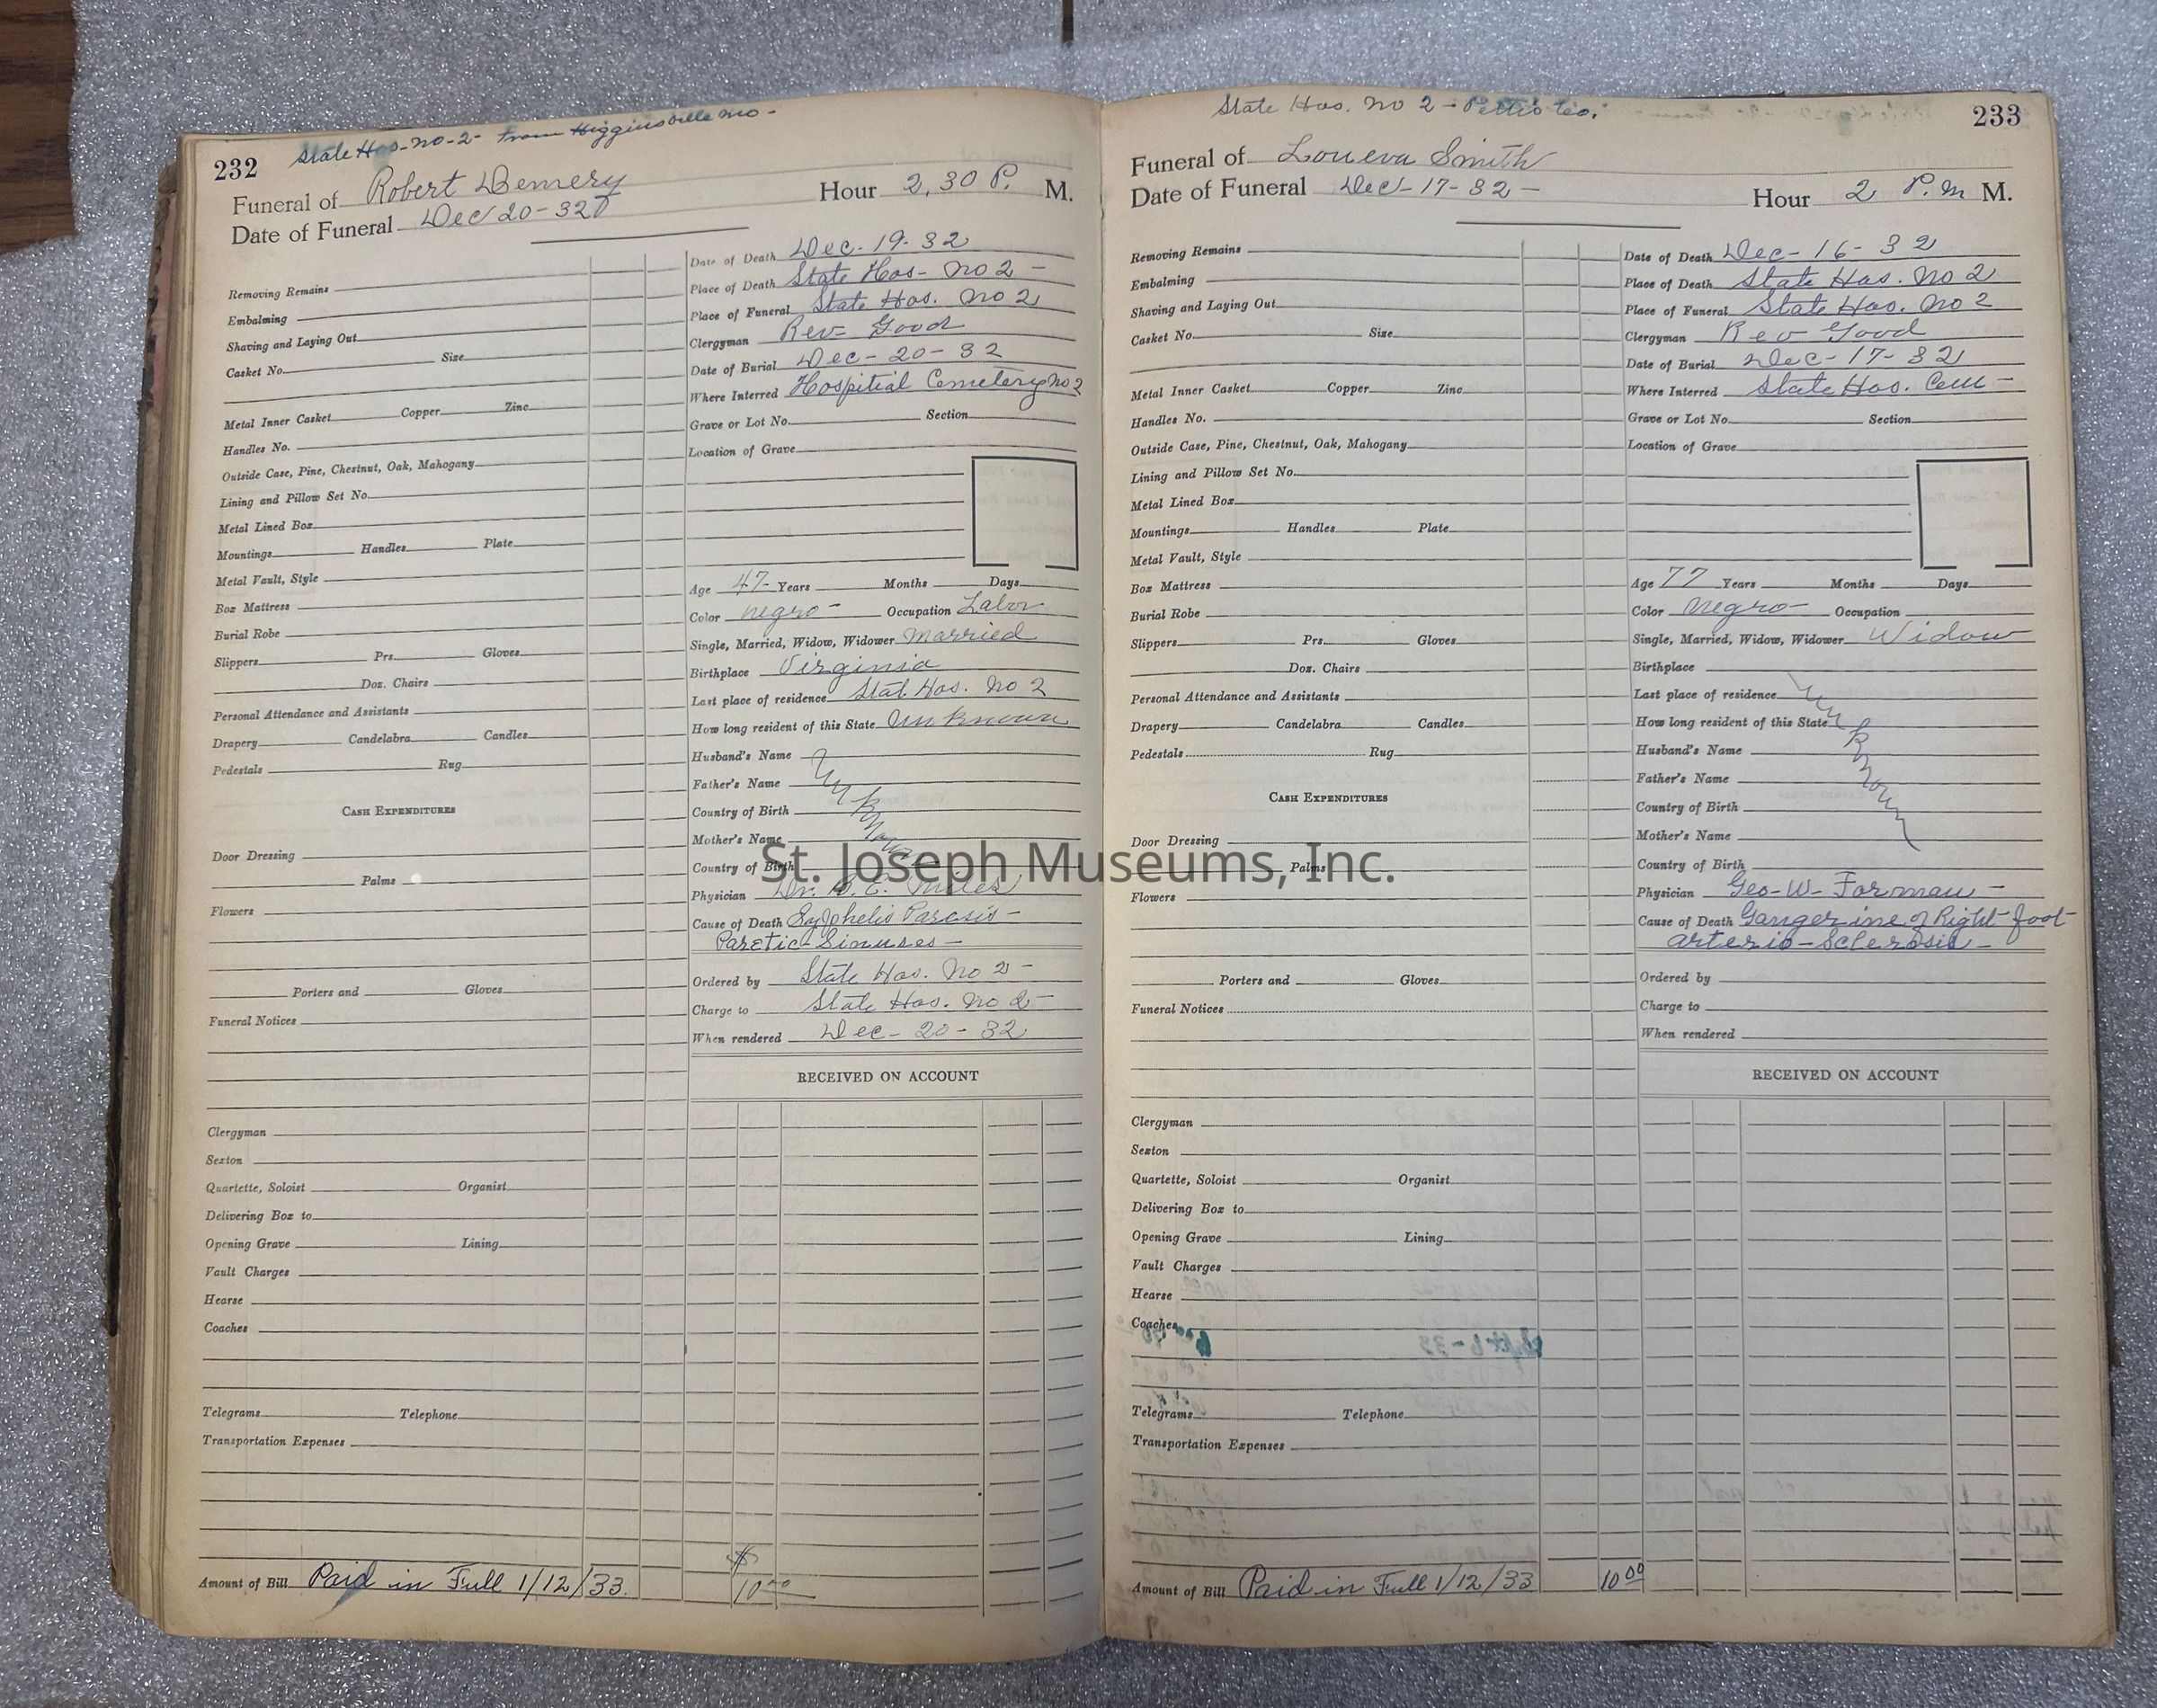 State Hos-No-2- From Higginsville Mo-
232
Funeral of Robert Demery
Hour 2,30 P. M.
Date of Funeral Dec 20-32
Removing Remains
Embalming
Shaving and Laying Out
Casket No. Size
Metal Inner Casket Copper Zinc
Handles No.
Outside Case, Pine, Chestnut, Oak, Mahogany
Lining and Pillow Set No.
Metal Lined Box
Mountings Handles Plate
Metal Vault, Style
Box Mattress
Burial Robe
Slippers Prs. Gloves
Doz. Chairs
Personal Attendance and Assistants
Drapery Candelabra Candles
Pedestals Rug
CASH EXPENDITURES
Door Dressing
Palms
Flowers
Porters and Gloves
Funeral Notices
Clergyman
Sexton
Quartette, Soloist Organist
Delivering Box to
Opening Grave Lining
Vault Charges
Hearse
Coaches
Telegrams Telephone
Transportation Expenses
Amount of Bill Paid in Full 1/12/33. $ 10.00
Date of Death Dec-19-32
Place of Death State Hos- No 2-
Place of Funeral State Hos. No 2
Clergyman Rev= Good
Date of Burial Dec-20-32
Where Interred Hospitial Cemetery No 2
Grave or Lot No. Section
Location of Grave
Age 47- Years Months Days
Color negro- Occupation Labor
Single, Married, Widow, Widower married
Birthplace Virginia
Last place of residence Stat. Hos. No 2
How long resident of this State Unknown
Husband's Name
Father's Name
Country of Birth
Unknown
Mother's Name
Country of Birth
Physician Dr.
Cause of Death Paresis-
Paretic-Sinuses-
Ordered by State Hos. No 2-
Charge to State Hos. No 2-
When rendered Dec-20-32
RECEIVED ON ACCOUNT
State Hos. No 2-Pettis Co.
233
Funeral of Loueva Smith
Date of Funeral Dec-17-32-
Hour 2 P.m M.
Removing Remains
Embalming
Shaving and Laying Out
Casket No. Size
Metal Inner Casket Copper Zinc
Handles No.
Outside Case, Pine, Chestnut, Oak, Mahogany
Lining and Pillow Set No.
Metal Lined Box
Mountings Handles Plate
Metal Vault, Style
Box Mattress
Burial Robe
Slippers Prs. Gloves
Doz. Chairs
Personal Attendance and Assistants
Drapery Candelabra Candles
Pedestals Rug
CASH EXPENDITURES
Door Dressing
Palms
Flowers
Porters and Gloves
Funeral Notices
Clergyman
Sexton
Quartette, Soloist Organist
Delivering Box to
Opening Grave Lining
Vault Charges
Hearse
Coaches
Telegrams Telephone
Transportation Expenses
Amount of Bill Paid in Full 1/12/33 10 00
Date of Death Dec-16-32
Place of Death State Hos. No 2
Place of Funeral State Hos. No 2
Clergyman Rev Good
Date of Burial Dec-17-32
Where Interred State Hos. Cem-
Grave or Lot No. Section
Location of Grave
Age 77 Years Months Days
Color negro- Occupation
Single, Married, Widow, Widower Widow
Birthplace
Last place of residence
How long resident of this State
Unknown
Husband's Name
Father's Name
Country of Birth
Mother's Name
Country of Birth
Physician Geo-W-Forman-
Cause of Death Gangerine of Right-foot
arterio-Sclerosis-
Ordered by
Charge to
When rendered
RECEIVED ON ACCOUNT
St. Joseph Museums, Inc.